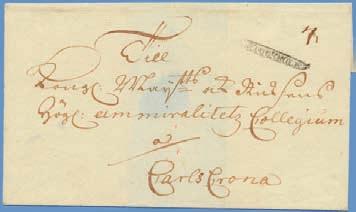 Till
Kongl: Maÿtts och Riksens
Högl: ammiralitetz Collegium
a
Carlscrona